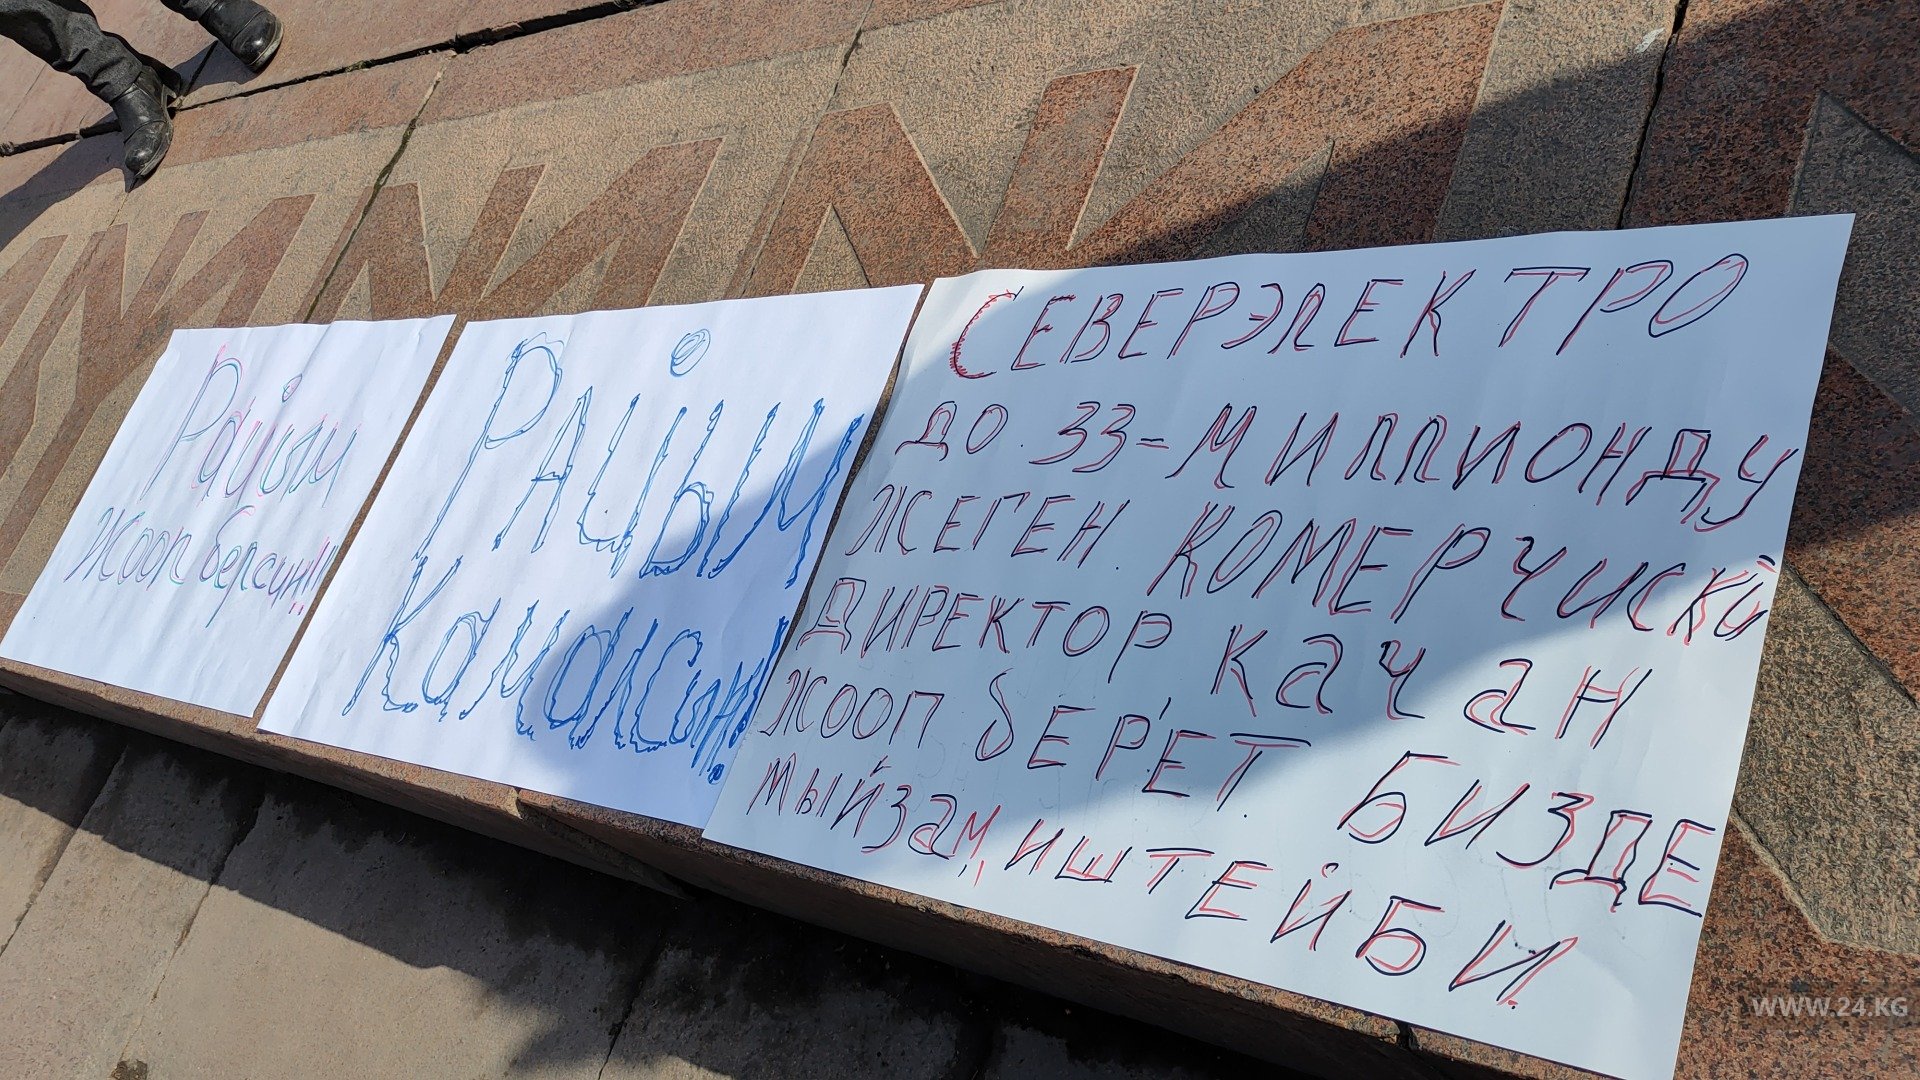 Райым
жооп берсин!!!
Райым
Камалсин!
СЕВЕРЭЛЕКТРО
ДО 33-МИЛЛИОНДУ
ЖЕГЕН КОМЕРЧИСКИ
ДИРЕКТОР КАЧАН
ЖООП БЕРЕТ. БИЗДЕ
МЫЙЗАМ, ИШТЕЙБИ.
WWW.24.KG